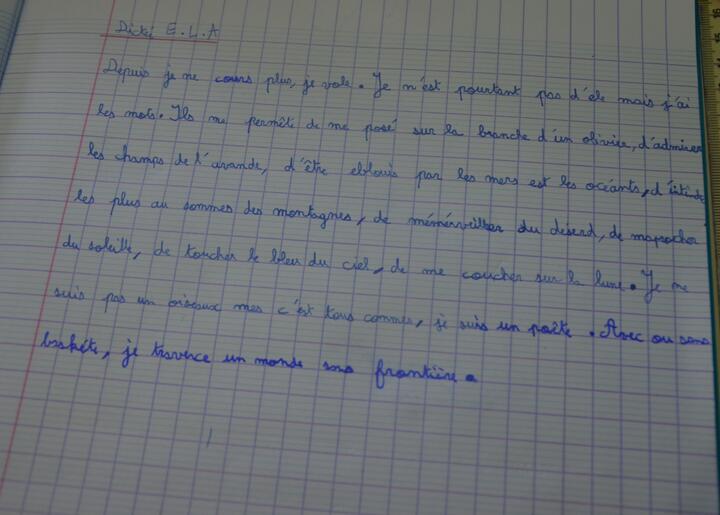 Dicté E.L.A
Depuis je ne cours plus, je vole. Je n'est pourtant pas d'éle mais j'ai
les mots. Ils me permête de me posé sur la branche d'un olivier, d'admirer
les champs de l'avande, d'être eblouis par les mers est les océants, d'étinde
les plus au sommes des montagnes, de mémérveiller du désend, de maprocher
du soleille, de toucher le bleu du ciel, de me coucher sur la lune. Je ne
suis pas un oiseaux mes c'est tous commes, je suis un poète. Avec ou sans
baskète, je traverce un monde sans frontière.